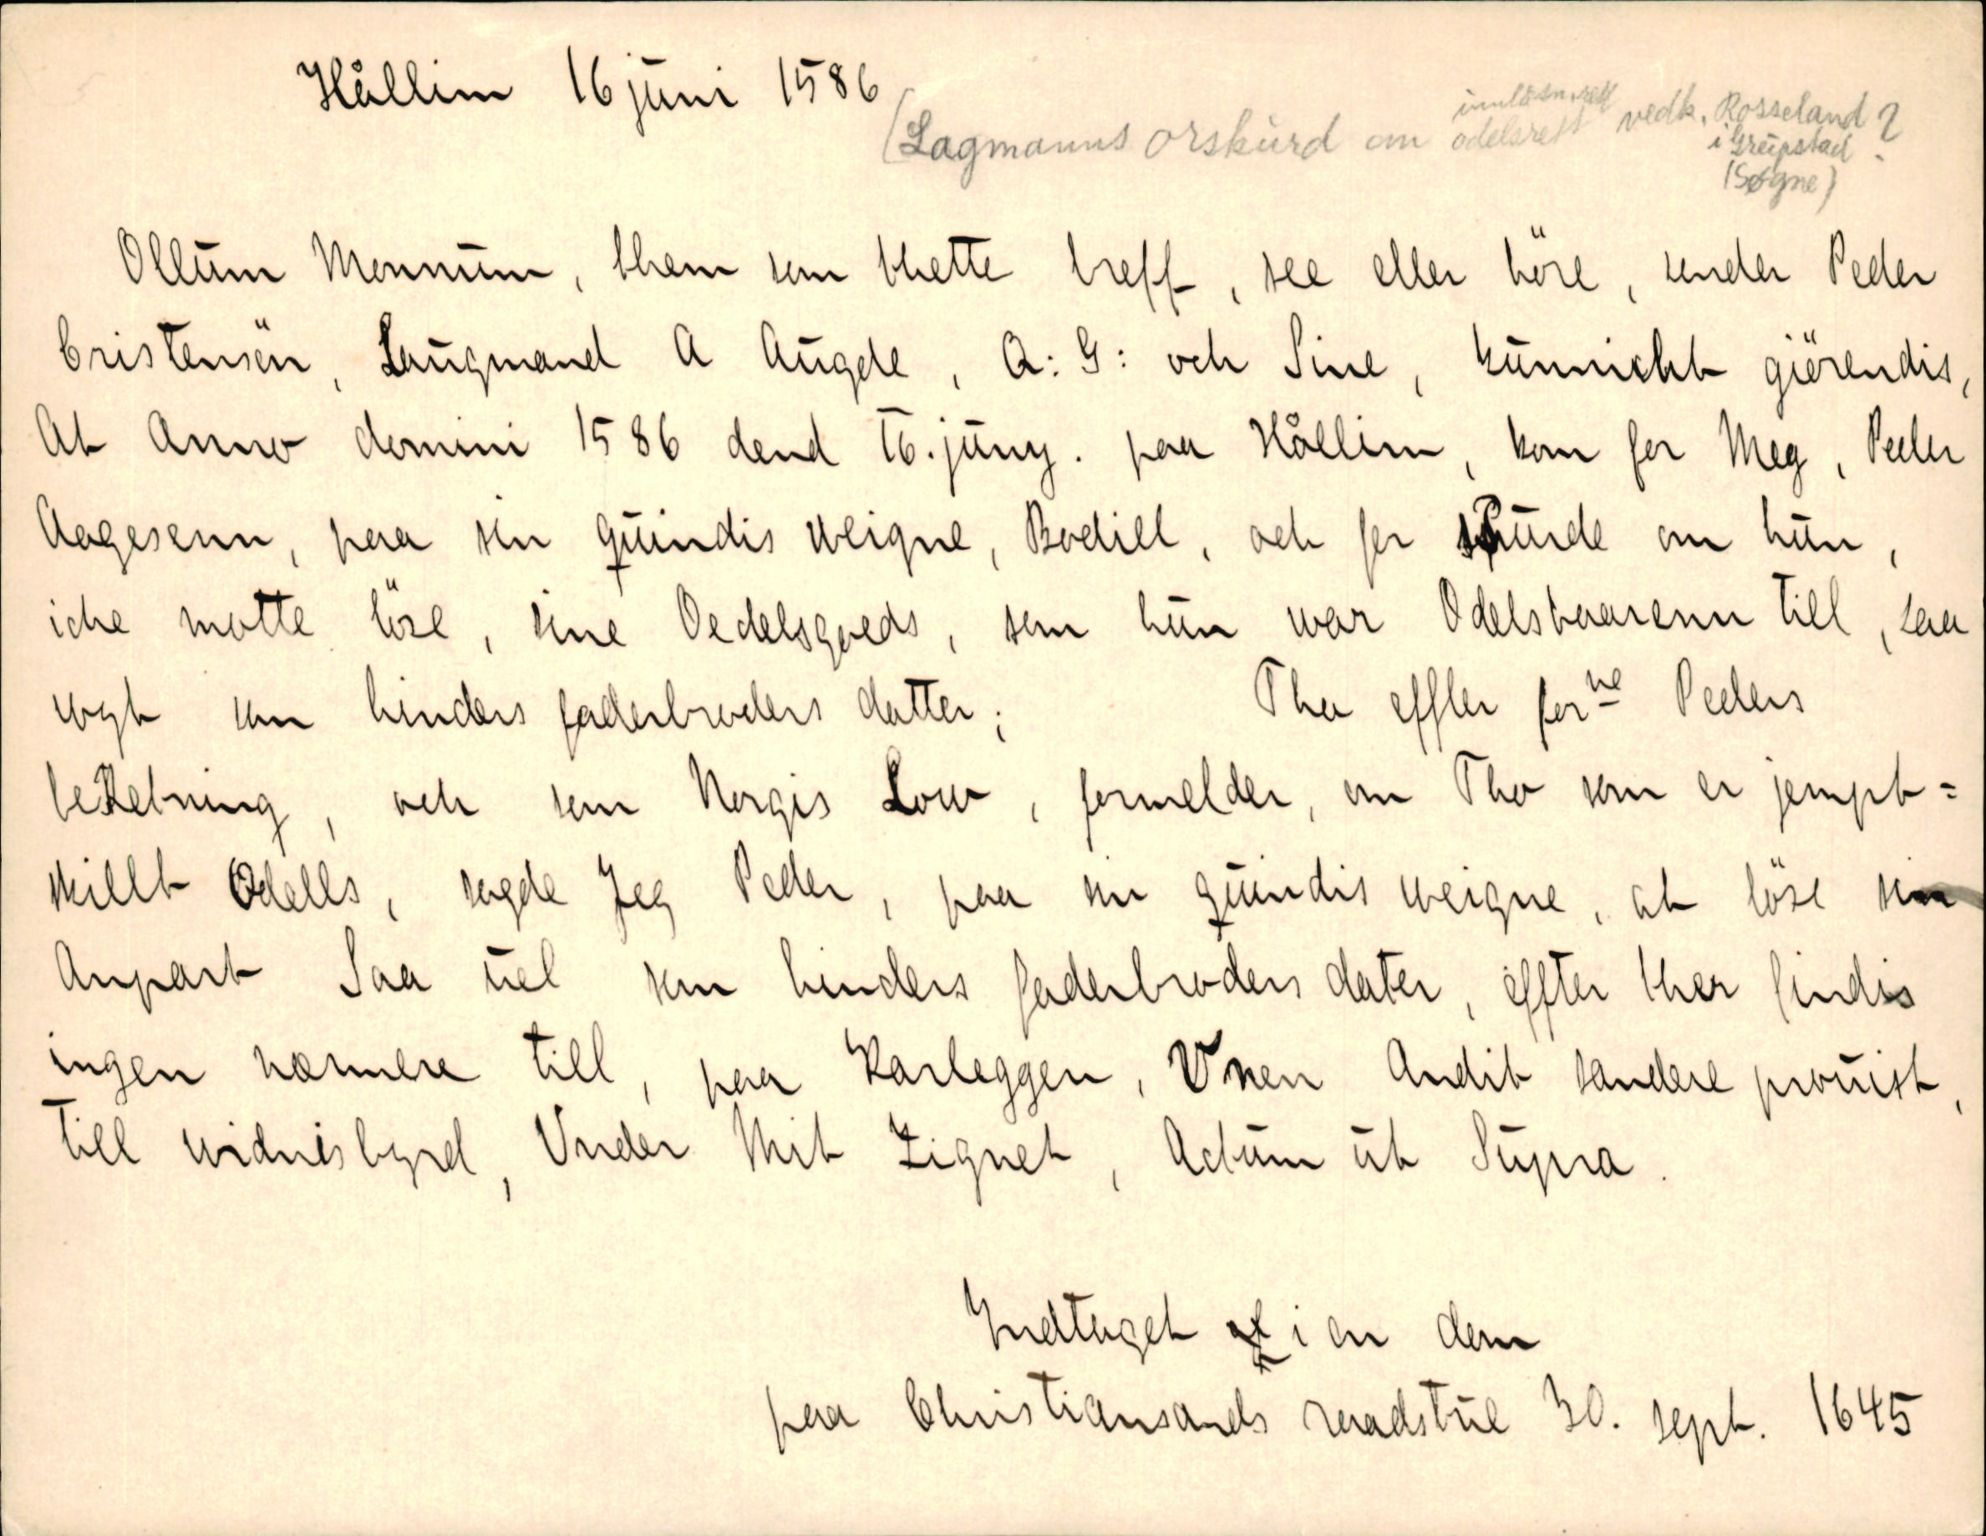 Hållim 16 juni 1586
(Lagmanns orskurd om odelsrett innløsn.rett vedk. Rosseland ?
i Greipstad
(Søgne)
Ollum Monnum, them som thette breff, see eller höre, sender Peder
Cristensön, Laugmand A Augde, Q: G: och Sine, kunnicht giörendis,
At Anno domini 1586 dend 16. juny. paa Hållim, kom for Meg, Peder
Aagesenn, paa sin quindis weigne, Bodill, och for spurde om hun,
iche motte löse, sine Oedelsgoeds, som hun war Odelsbaarenn till, saa
wyt som hinders faderbroders datter; Tha effter forne Peders
beretning, och som Norgis Low, formelder, om Tho som er jempt=
skillt Odells, sagde Jeg Peder, paa sin quindis weigne, at löse sin
Anpart Saa uel som hinders faderbroders dater, effter ther findis
ingen nærmere till, paa Karleggen, Vnen Andit sandere prouist,
till widnisbyrd, Vnder Mit Zignet, Actum ut Supra.
Indtaget i en dom
paa Christiansands raadstue 30. sept. 1645